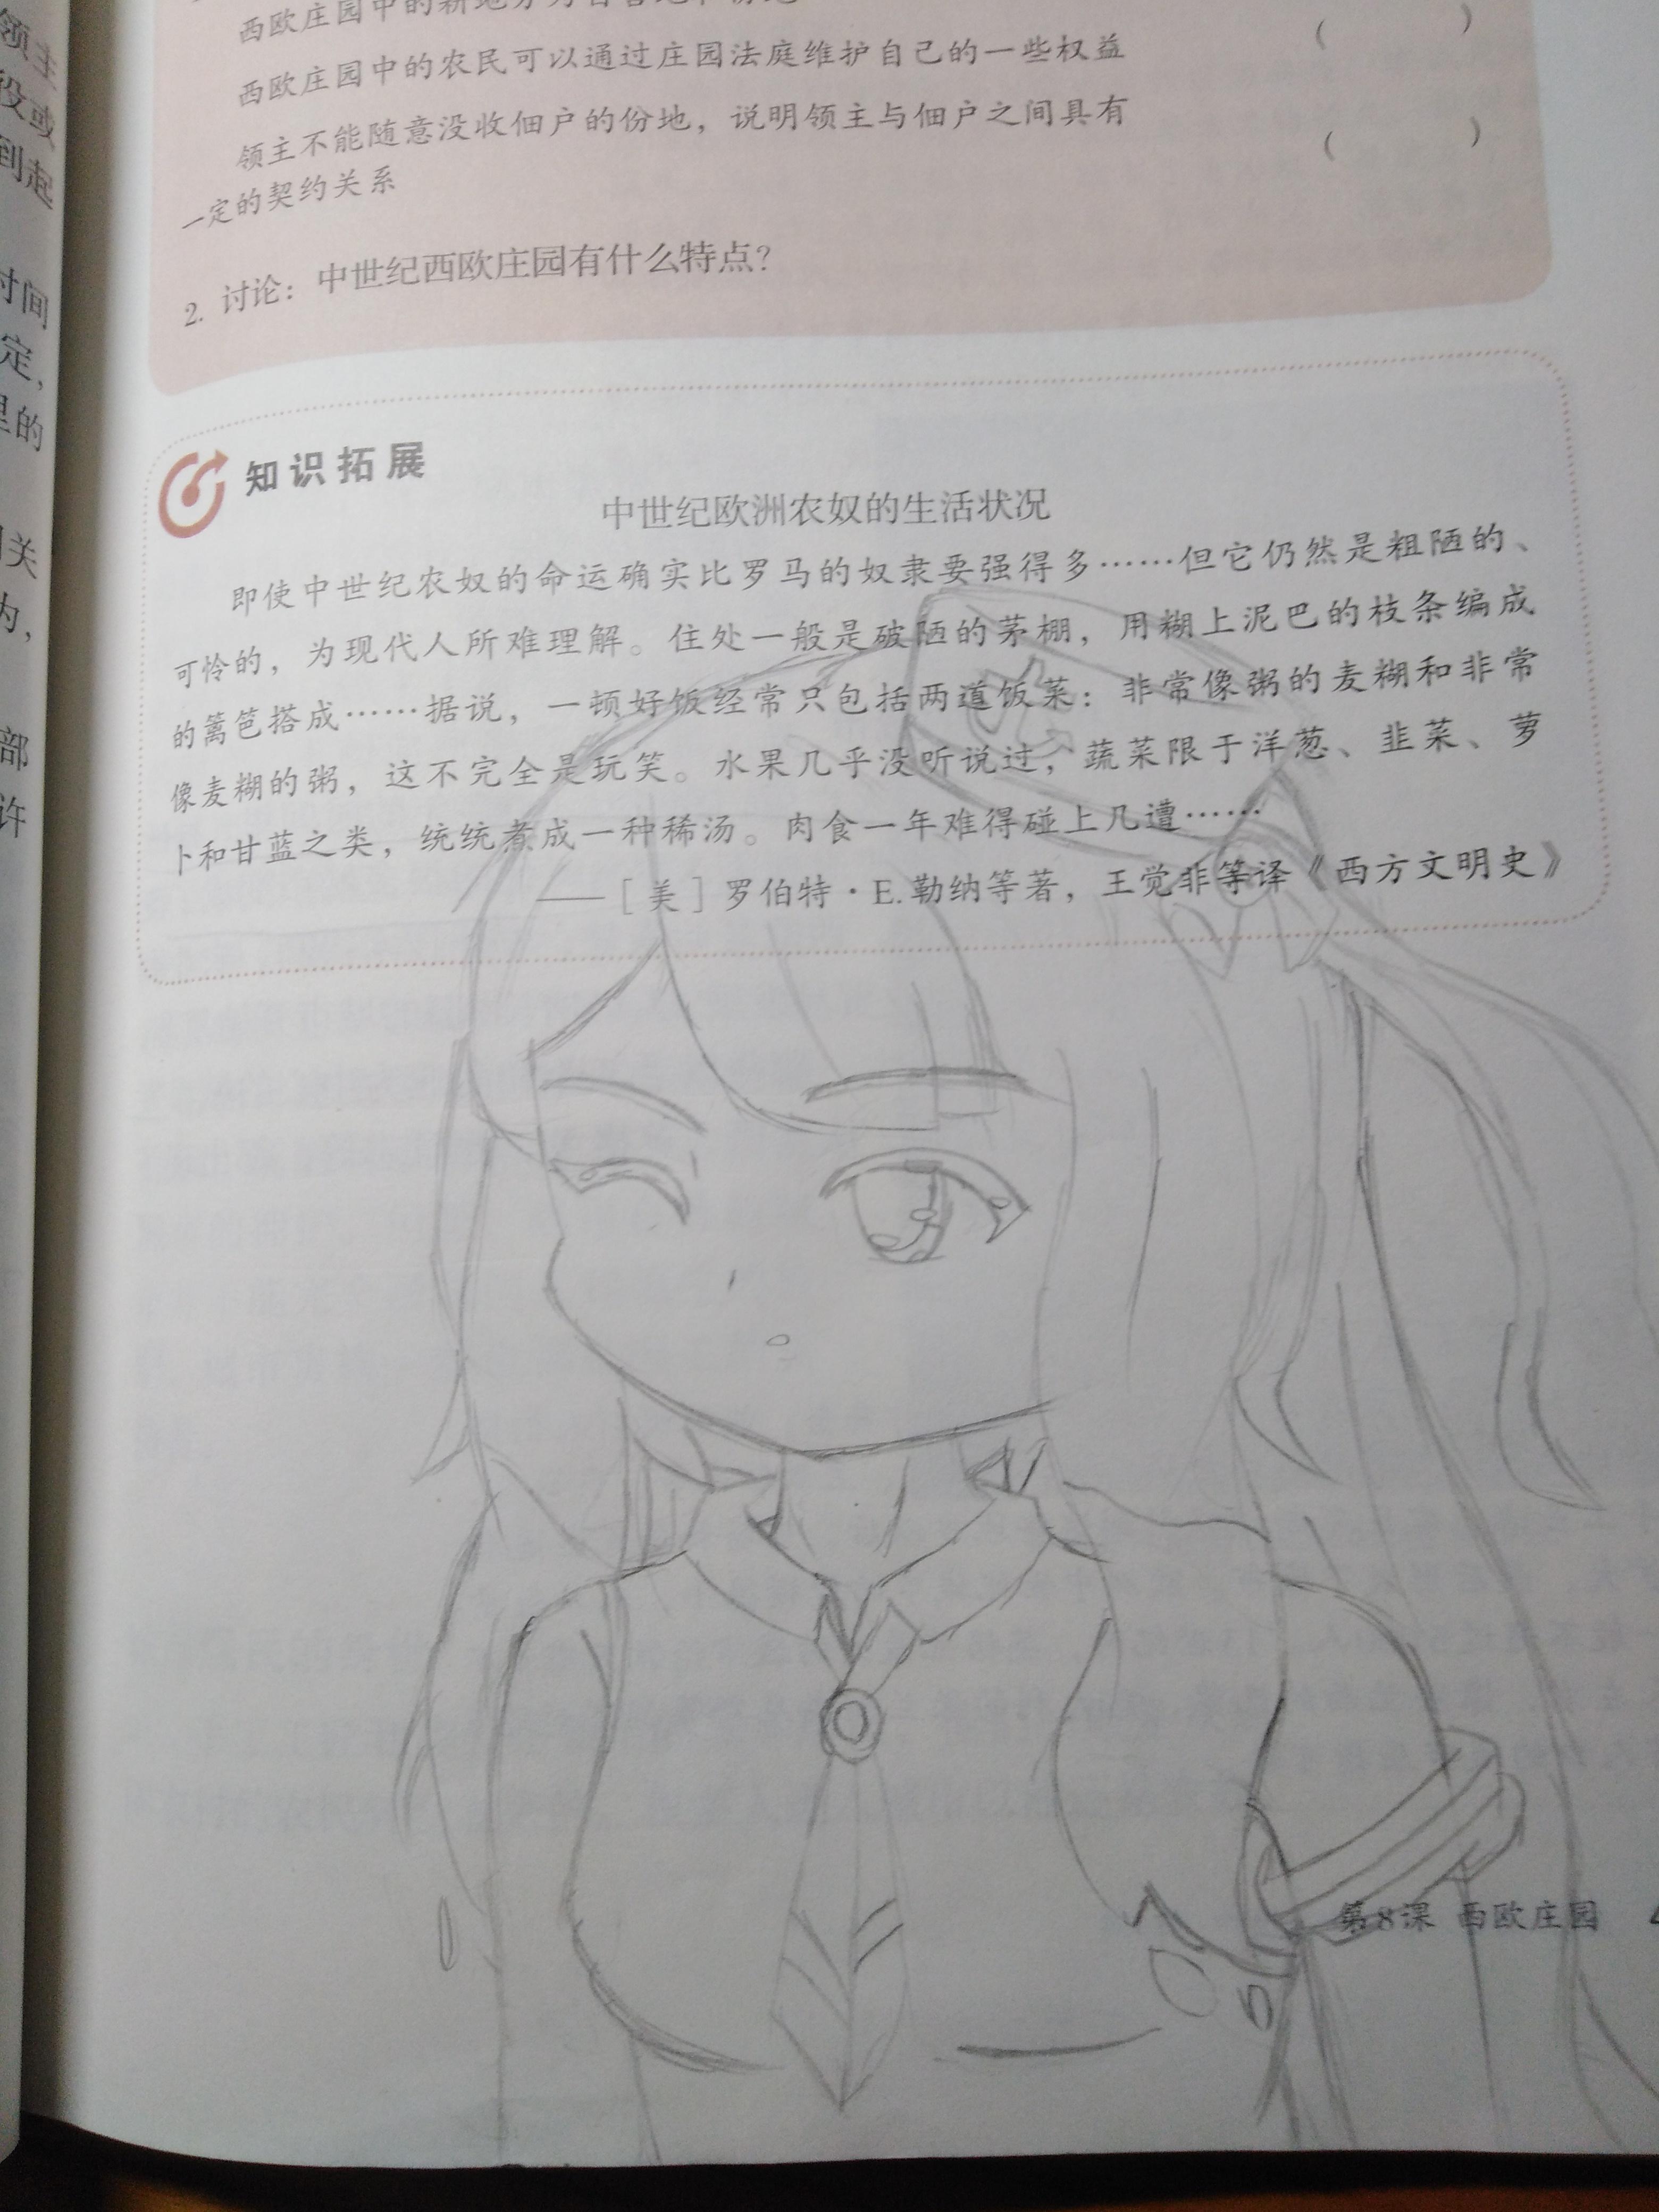 领主
役或
到起
时间
定，
里的
关
为，
部
许
西欧庄园中的
西欧庄园中的农民可以通过庄园法庭维护自己的一些权益
( )
领主不能随意没收佃户的份地，说明领主与佃户之间具有
一定的契约关系
( )
2. 讨论：中世纪西欧庄园有什么特点？
知识拓展
中世纪欧洲农奴的生活状况
即使中世纪农奴的命运确实比罗马的奴隶要强得多……但它仍然是粗陋的、
可怜的，为现代人所难理解。住处一般是破陋的茅棚，用糊上泥巴的枝条编成
的篱笆搭成……据说，一顿好饭经常只包括两道饭菜：非常像粥的麦糊和非常
像麦糊的粥，这不完全是玩笑。水果几乎没听说过，蔬菜限于洋葱、韭菜、萝
卜和甘蓝之类，统统煮成一种稀汤。肉食一年难得碰上几遭……
——［美］罗伯特·E.勒纳等著，王觉非等译《西方文明史》
第8课 西欧庄园